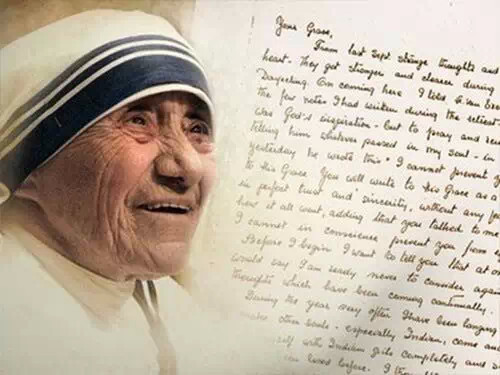 Your Grace,
From last Sept. strange thoughts and
heart. They got stronger and clearer during
Darjeeling. On coming here I told
the few notes I had written during the retreat
was God's inspiration - but to pray and
telling him whatever passed in my soul - in
yesterday he wrote this "I cannot prevent
to His Grace. You will write to His Grace as a
in perfect trust and sincerity, without any
how it all went, adding that you talked to me
I cannot in conscience prevent you from
Before I begin I want to tell you that at
would say I am ready never to consider again
thoughts which have been coming continually.
During the year very often I have been longing
make other souls - especially Indian, come and
self with Indian girls completely and
loved before. I